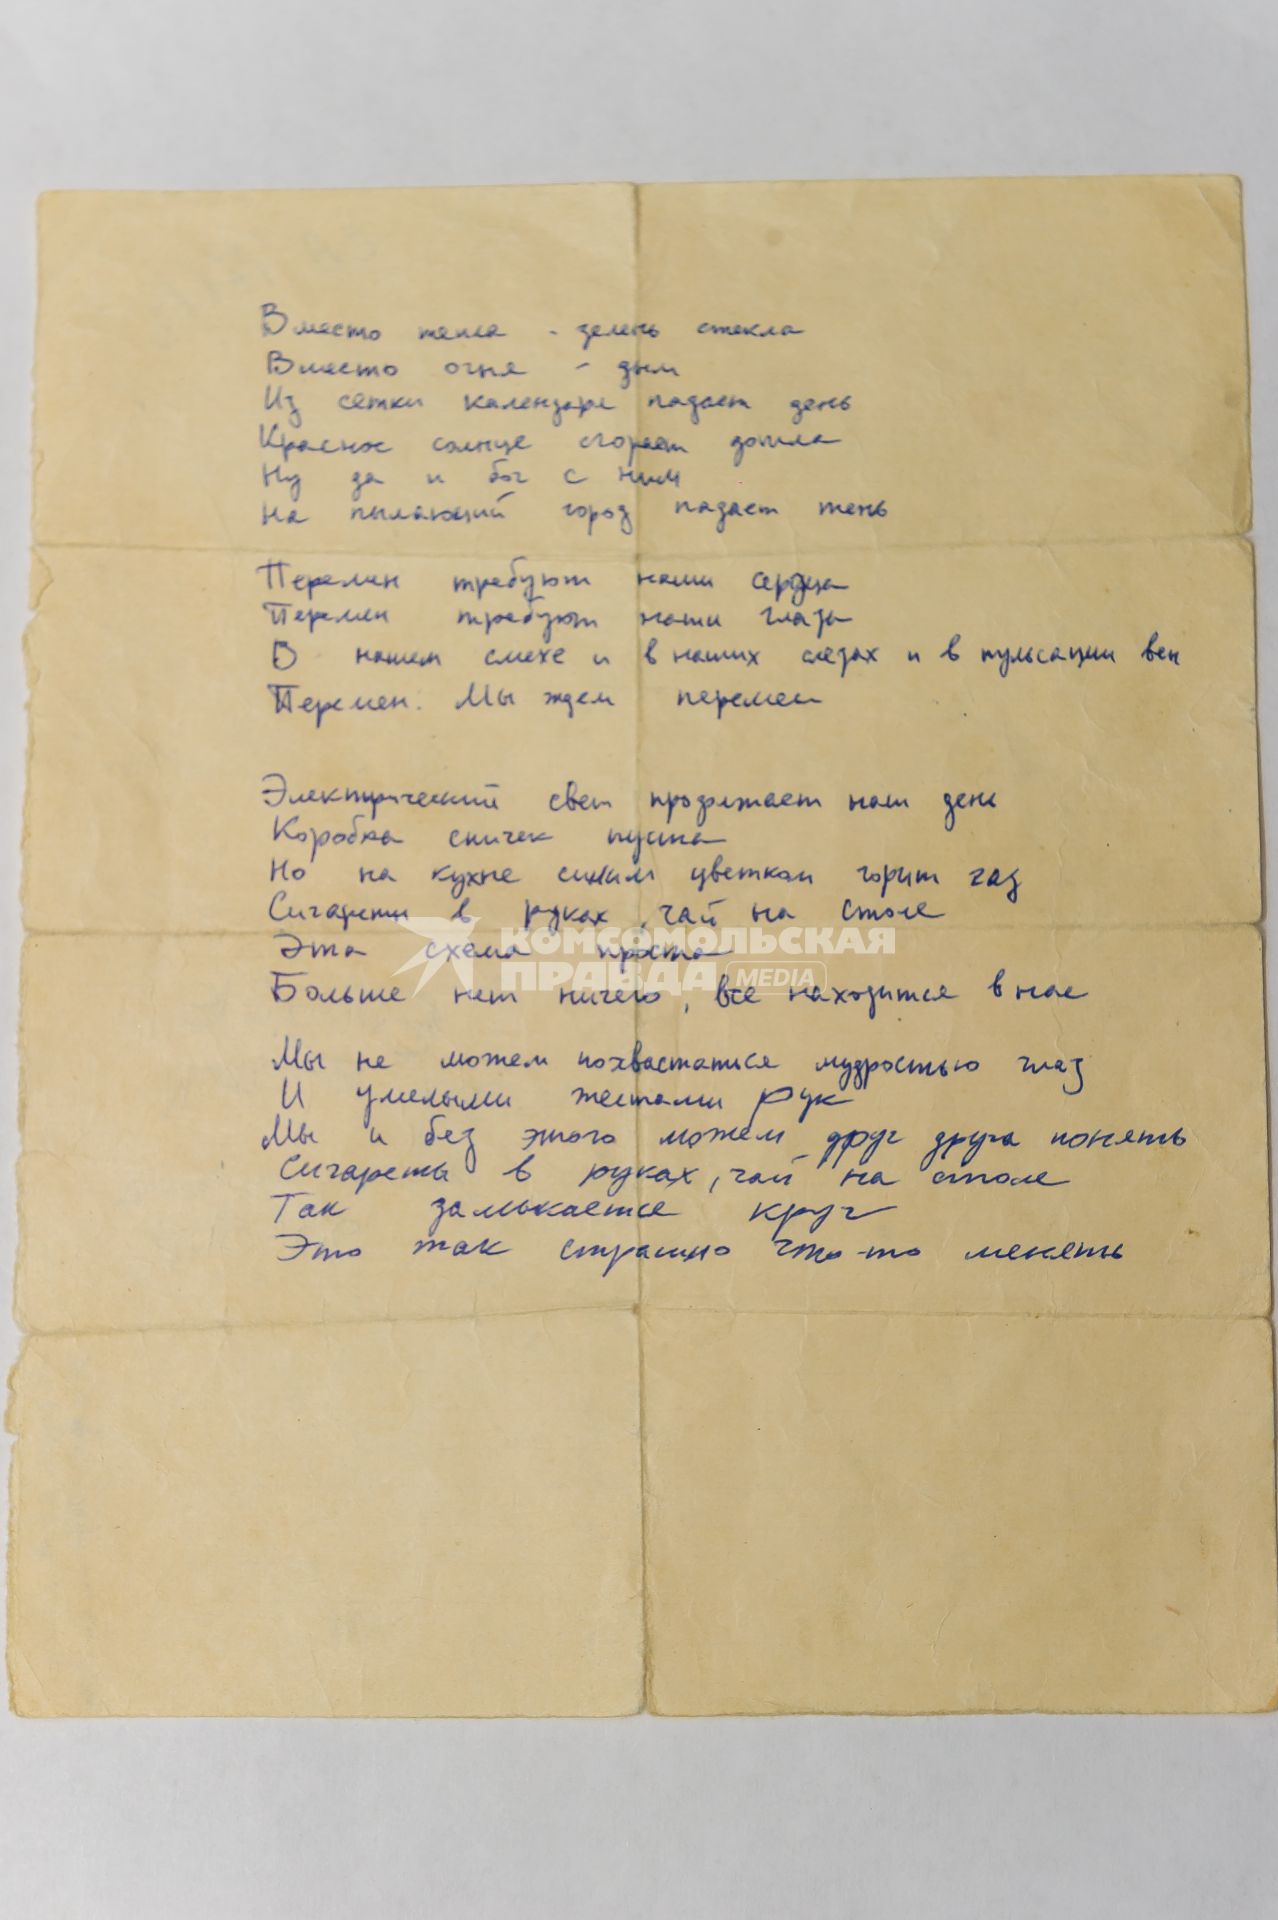 Вместо тепла - зелень стекла
Вместо огня - дым
Из сетки календаря падает день
Красное солнце сгорает дотла
Ну да и бог с ним
На пылающий город падает тень
Перемен требуют наши сердца
Перемен требуют наши глаза
В нашем смехе и в наших слезах и в пульсации вен
Перемен. Мы ждем перемен
Электрический свет продолжает наш день
Коробка спичек пуста
Но на кухне синим цветком горит газ
Сигареты в руках, чай на столе
Эта схема проста
Больше нет ничего, все находится в нас
Мы не можем похвастаться мудростью глаз
И умелыми жестами рук
Мы и без этого можем друг друга понять
Сигареты в руках, чай на столе
Так замыкается круг
Это так страшно что-то менять
КОМСОМОЛЬСКАЯ
ПРАВДА MEDIA